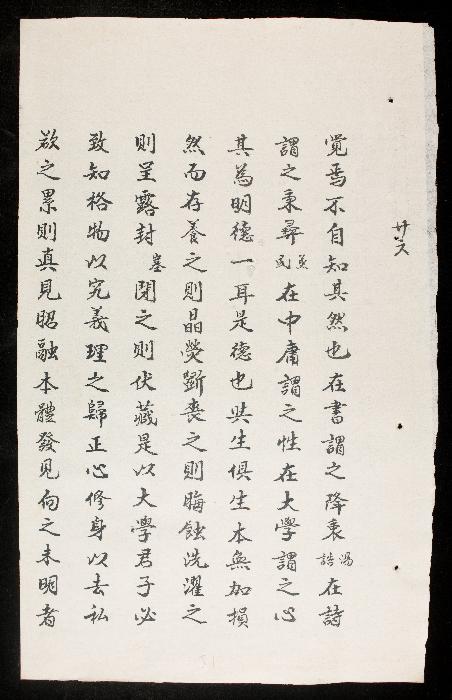 廿六
覺焉不自知其然也在書謂之降衷湯誥在詩
謂之秉彞蒸民在中庸謂之性在大學謂之心
其為明德一耳是德也與生俱生本無加損
然而存養之則晶熒斲喪之則晦蝕洗濯之
則呈露封塞閉之則伏藏是以大學君子必
致知格物以究義理之歸正心修身以去私
欲之累則真見昭融本體發見向之未明者